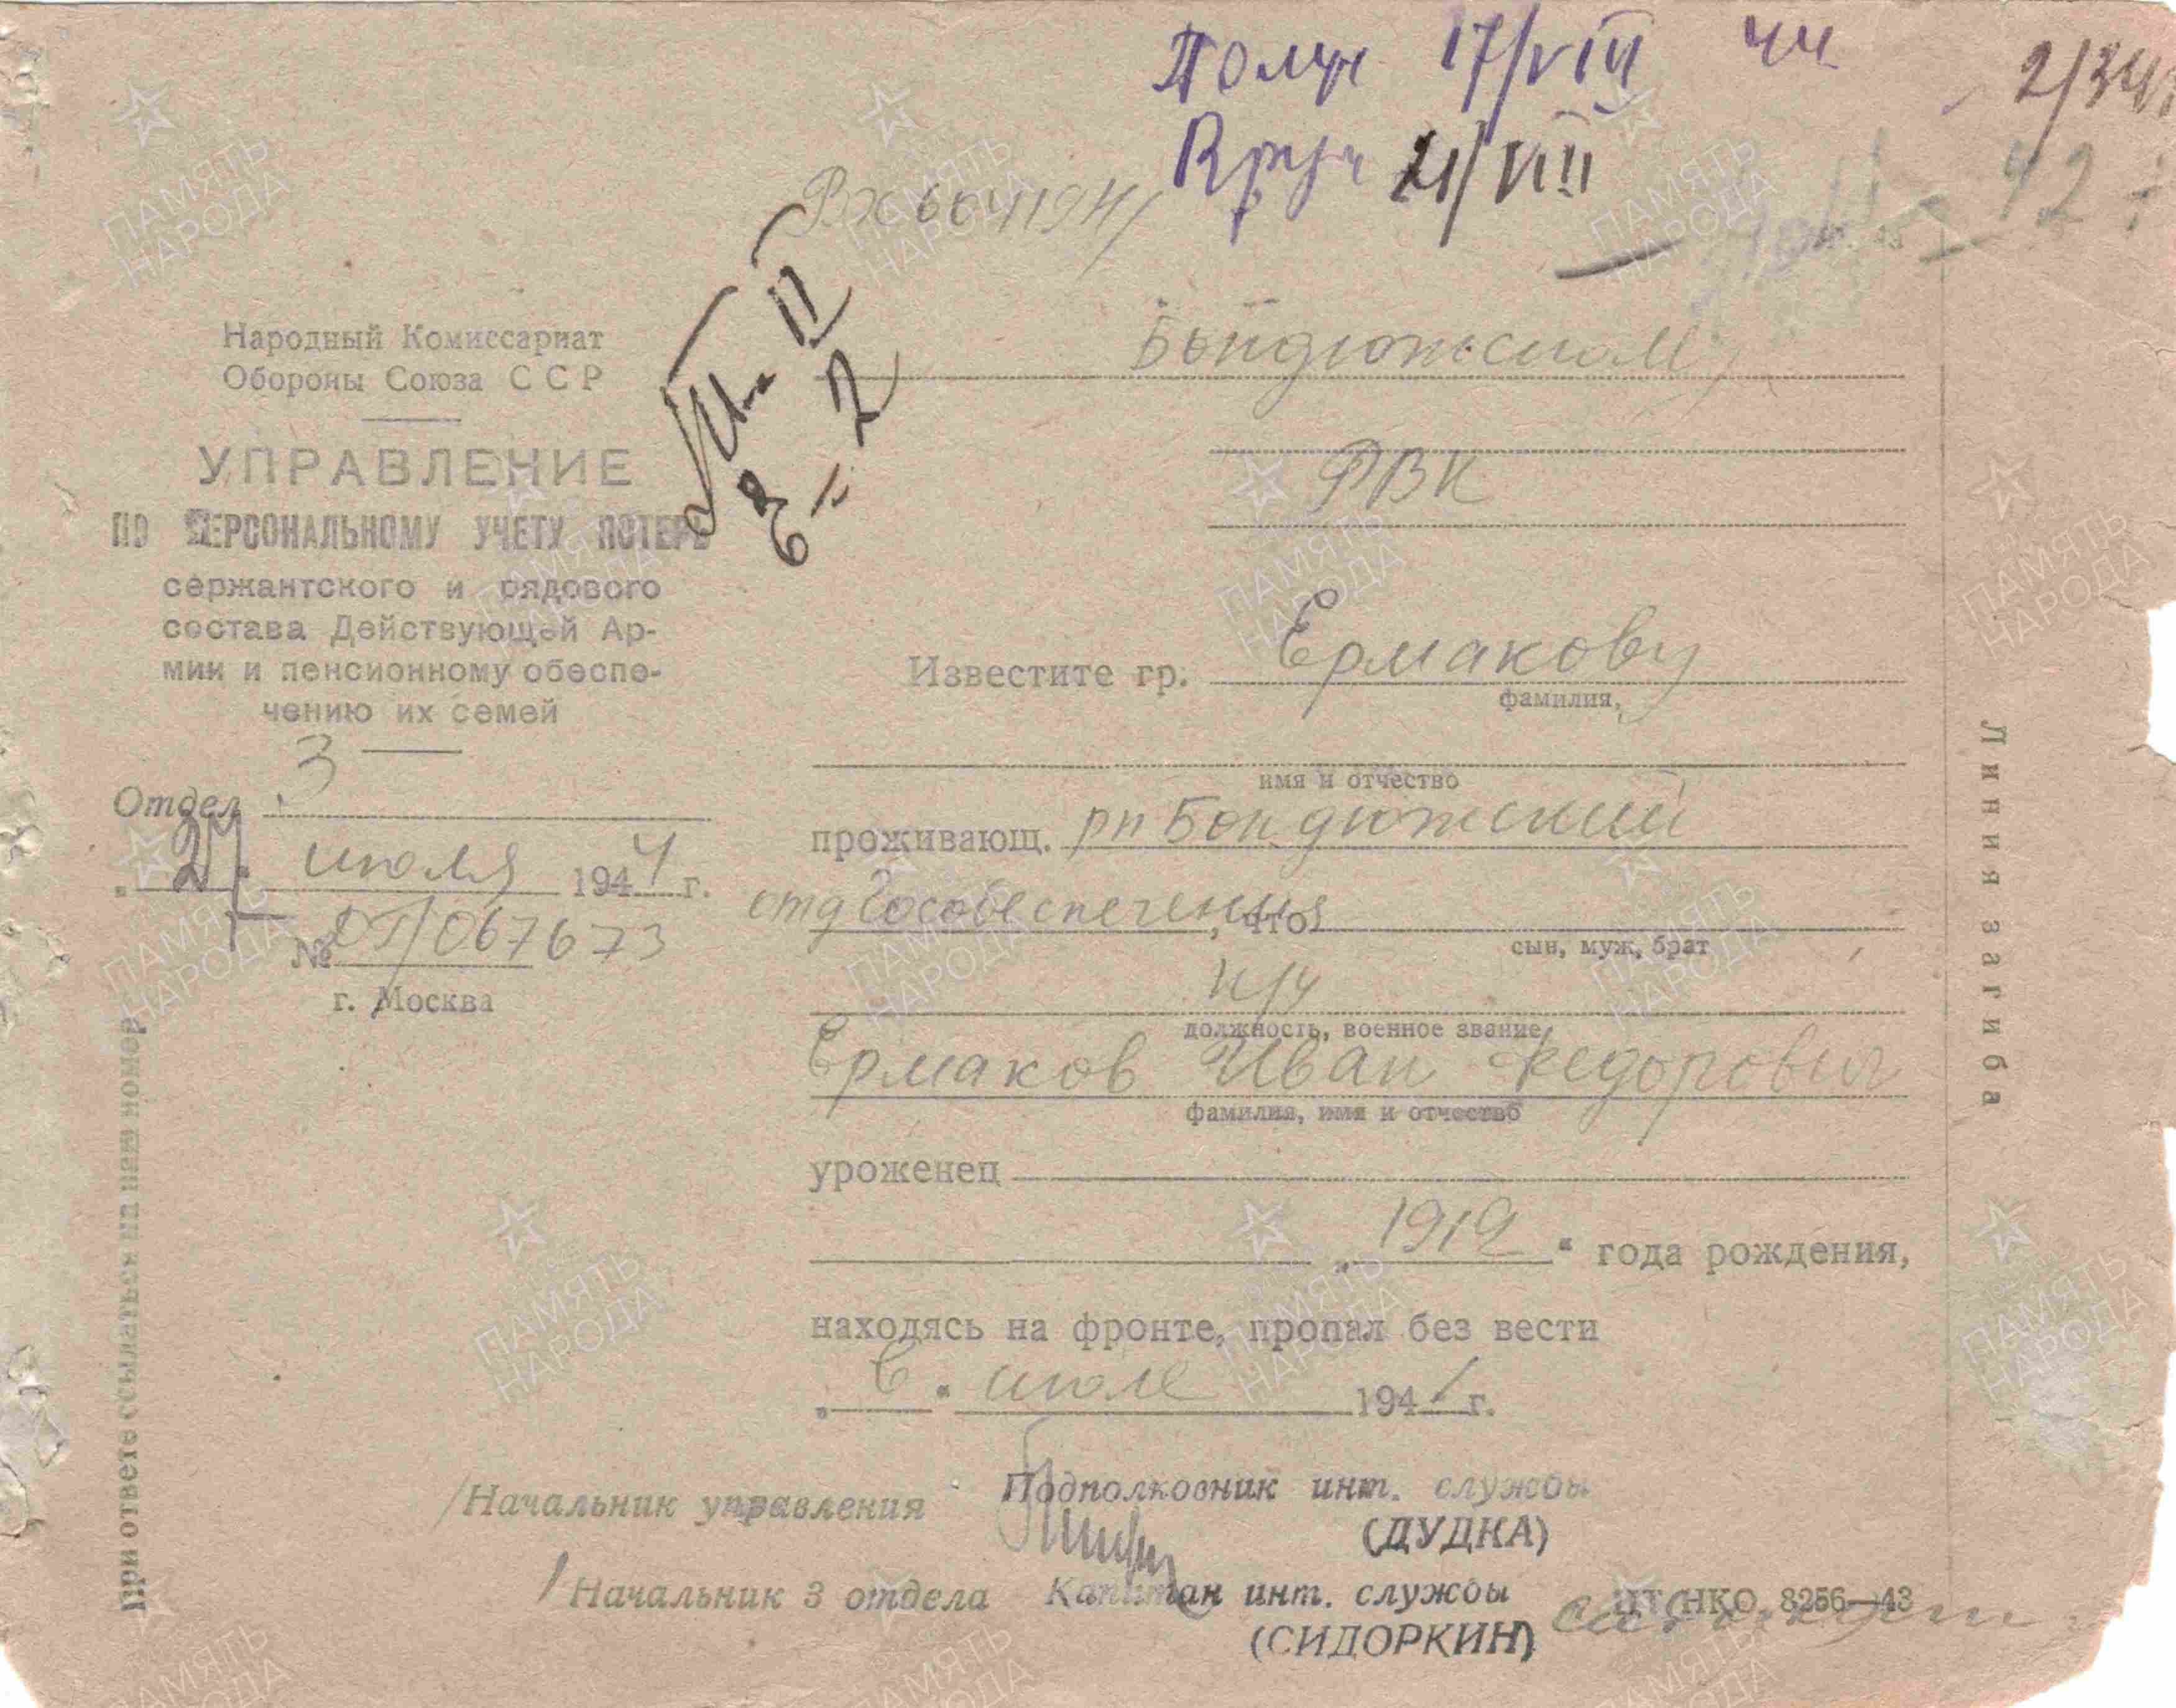 Получ 17/VIII
Вруч 21/VIII
Народный Комиссариат
Обороны Союза ССР
УПРАВЛЕНИЕ
ПО ПЕРСОНАЛЬНОМУ УЧЕТУ ПОТЕРЬ
сержантского и рядового
состава Действующей Ар-
мии и пенсионному обеспе-
чению их семей
Отдел 3
"27" июля 1944 г.
№ ОП/067673
г. Москва
При ответе ссылаться на наш номер
Бондюжскому
РВК
Известите гр. Ермакову
фамилия,
имя и отчество
проживающ. рп Бондюжский
отд Гособеспечения, что
сын, муж, брат
должность, военное звание,
Ермаков Иван Федорович
фамилия, имя и отчество
уроженец
"1919" года рождения,
находясь на фронте, пропал без вести
"в" июле 1941 г.
Начальник управления Подполковник инт. службы
(ДУДКА)
Начальник 3 отдела Капитан инт. службы
(СИДОРКИН)
ЦТ НКО 8256—43
Линия загиба
ПАМЯТЬ
НАРОДА